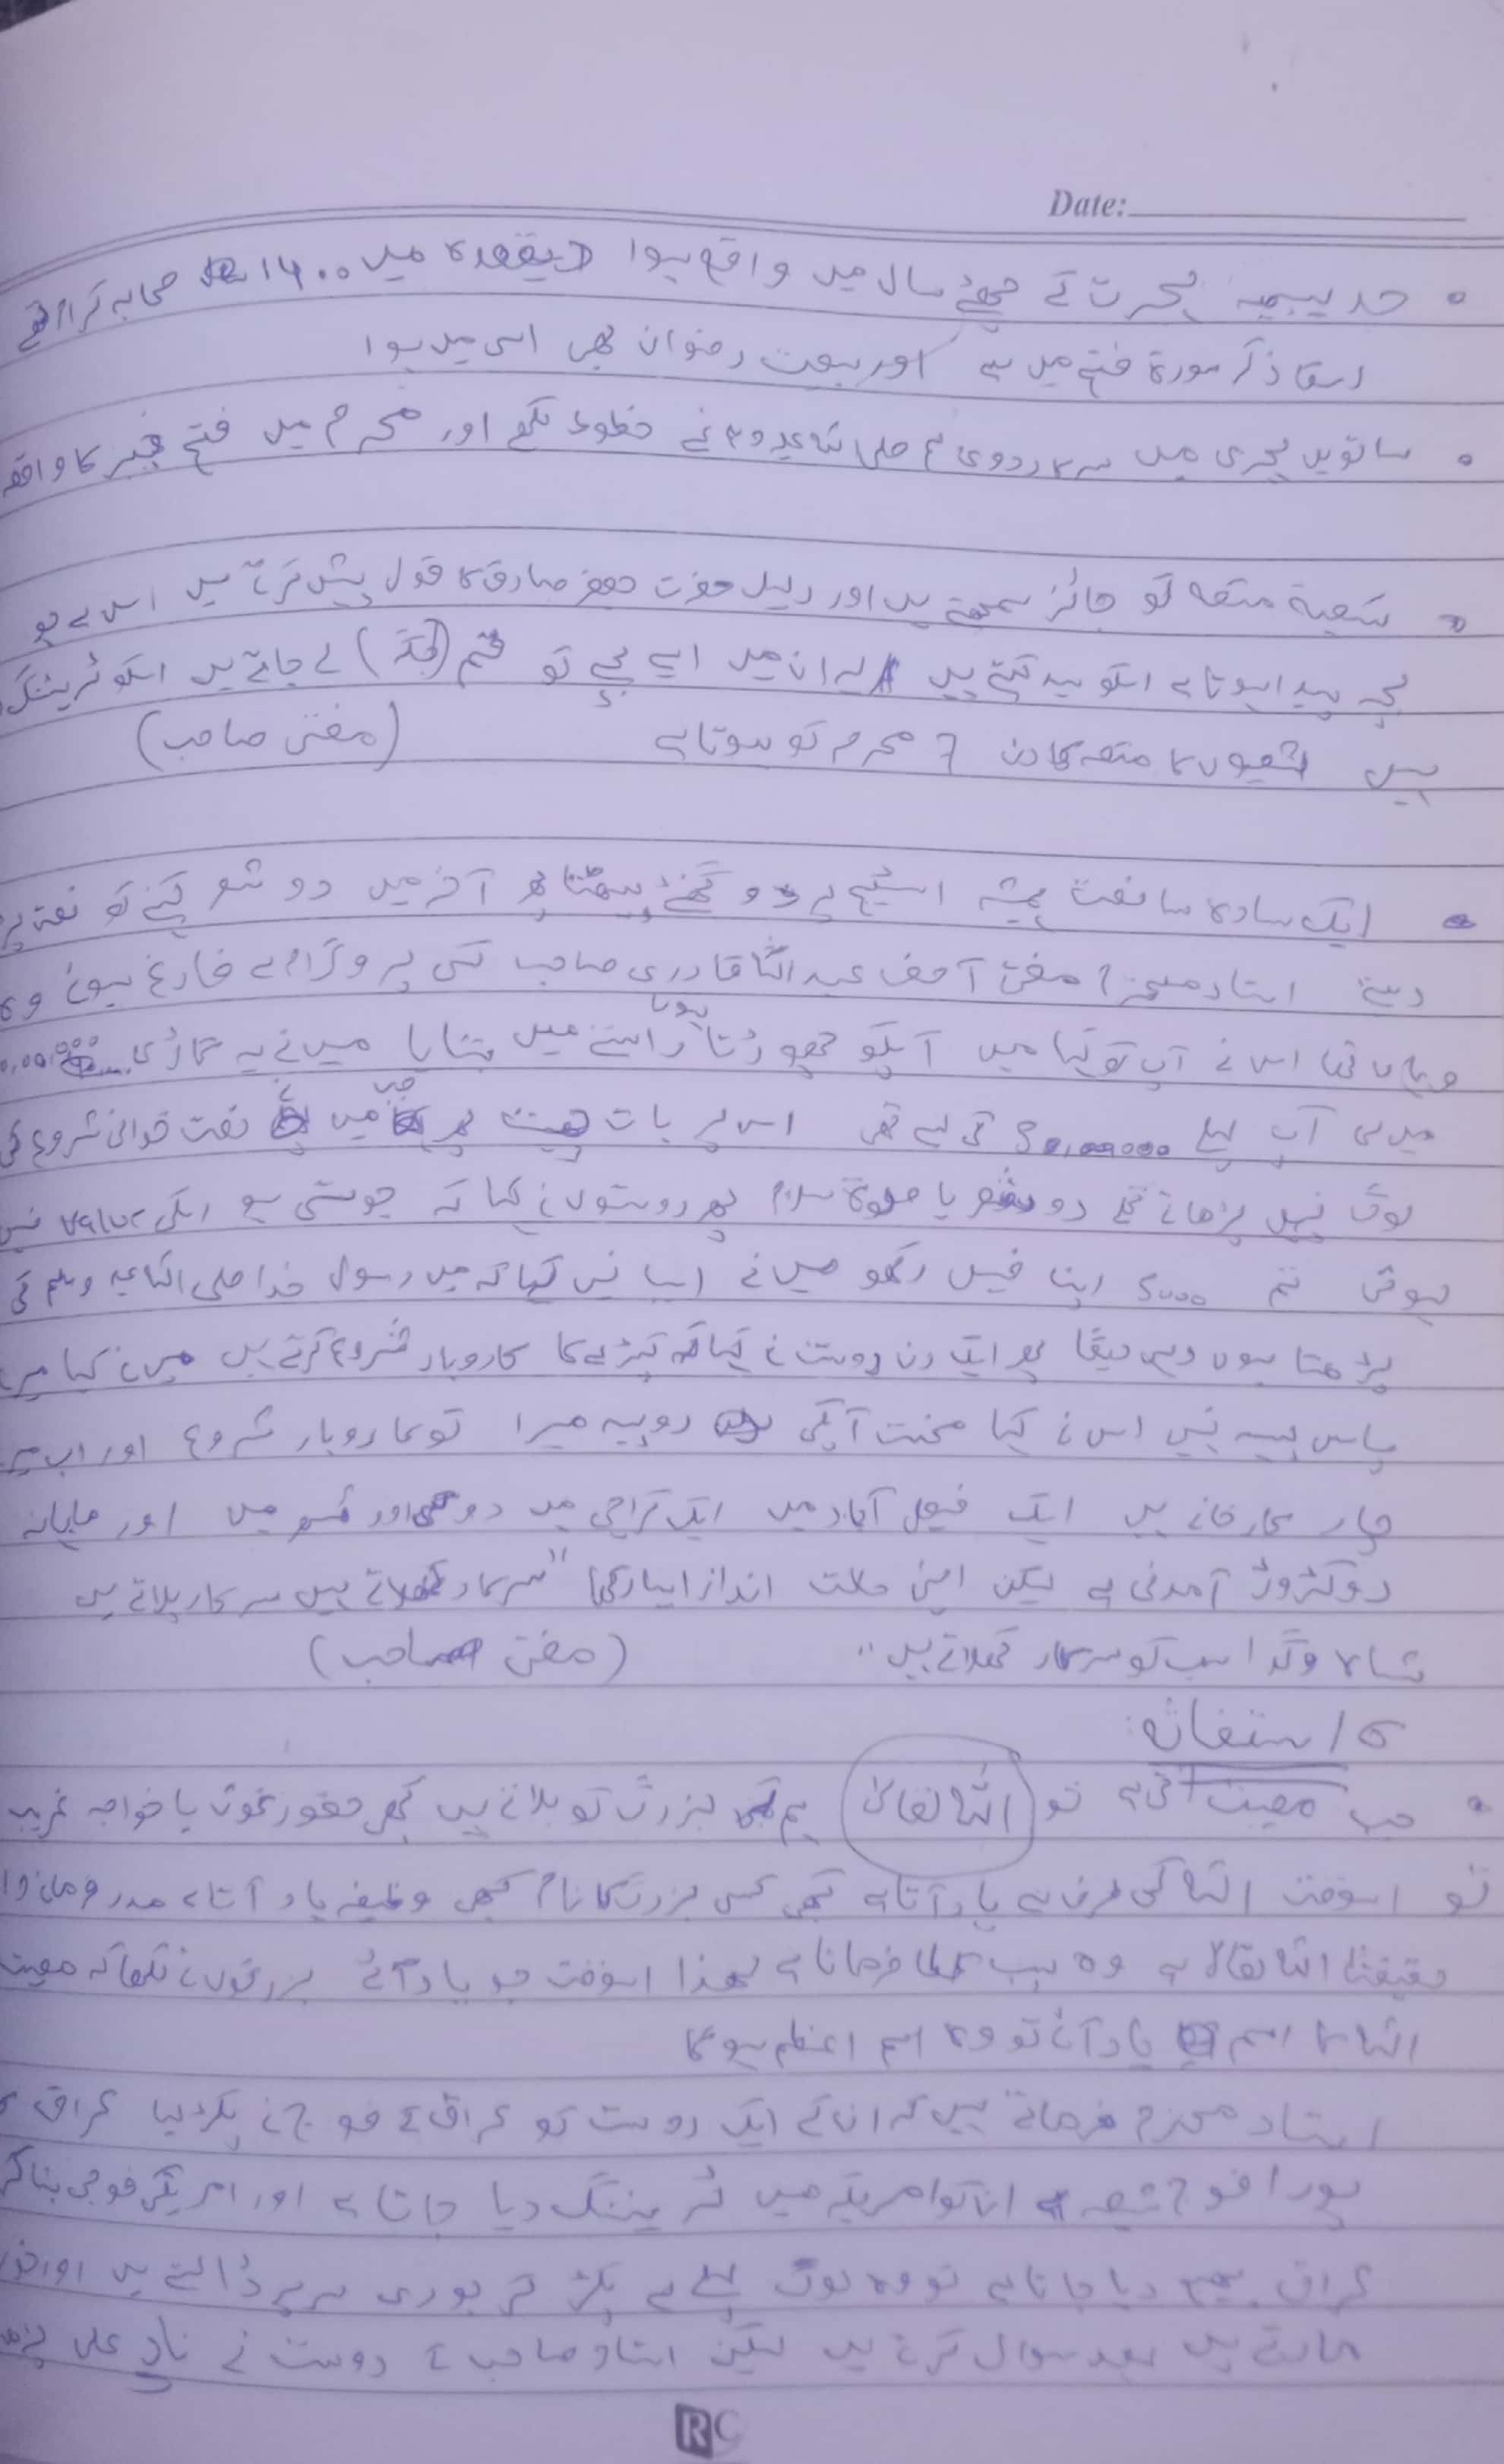 Date:
حدیبیہ ہجرت کے چھٹے سال میں واقع ہوا ذیقعدہ میں 1400 صحابہ کرام تھے
اسکا ذکر سورۃ فتح میں ہے اور بیعت رضوان بھی اسی میں ہوا
ساتویں ہجری میں سرکار دوی ع صلی اللہ علیہ وسلم نے خطوط لکھے اور محرم میں فتح خیبر کا واقعہ
شیعہ متعہ کو جائز سمجھتے ہیں اور دلیل حضرت جعفر صادق کا قول پیش کرتے ہیں اس سے جو
بچہ پیدا ہوتا ہے اسکو سید کہتے ہیں ایران میں ایسے بچے تو قم (جگہ) لے جاتے ہیں اسکو ٹریننگ
ہیں شیعوں کا متعہ کا دن 7 محرم کو ہوتا ہے (مفتی صاحب)
ایک سادہ سا نعت اسٹیج پر دو گھنٹے بیٹھتا پھر آخر میں دو شعر کہنے کو نعت پر
دیتے استاد محترم مفتی آصف عبداللہ قادری صاحب کسی پروگرام سے فارغ ہوئے وہ
وہاں تھا اس نے آپ کو کہا میں آپکو چھوڑتا ہوں راستے میں بتایا میں نے یہ گاڑی
میں لی آپ لیلے کی لی تھی اس پر بات چیت پھر میں جب نعت خوانی شروع کی
لوگ نہیں پڑھاتے تھے دو شعر یا صلوۃ سلام پھر دوستوں نے کہا کہ جو سنی ہے انکی value نہیں
ہوتی تم 5000 اپنا فیس رکھو میں نے ایسا نہیں کیا کہ میں رسول خدا صلی اللہ علیہ وسلم کی
پڑھتا ہوں وہیں دیگا پھر ایک دن دوست نے کہا کہ کپڑے کا کاروبار شروع کرتے ہیں میں نے کہا میرے
پاس پیسہ نہیں اس نے کہا محنت آپکی روپیہ میرا تو کاروبار شروع اور اب میرے
چار کارخانے ہیں ایک فیصل آباد میں ایک کراچی میں دو اور شہر میں اور ماہانہ
دو کڑوڑ آمدنی ہے لیکن اپنی حالت انداز ایسا رکھا "سرکار کھلاتے ہیں سرکار پلاتے ہیں
شاہ و گدا سب کو سرکار کھلاتے ہیں" (مفتی صاحب)
استغاثہ:
جب مصیبت آتی ہے تو اللہ تعالیٰ ہم بزرگ کو بلاتے ہیں کبھی حضور غوث یا خواجہ غریب
تو اسوقت اللہ کی طرف سے یاد آتا ہے کبھی کسی بزرگ کا نام کبھی وظیفہ یاد آتا ہے مدد فرمانے والا
حقیقتا اللہ تعالیٰ ہے وہ سب عطا فرماتا ہے لھذا اسوقت جو یاد آئے بزرگوں نے لکھا کہ مصیبت
اللہ کا اسم یاد آئے تو وہ اسم اعظم ہوگا
استاد محترم فرماتے ہیں کہ ان کے ایک دوست کو عراق کے فوج نے پکڑ لیا عراق کا
پورا فوج شیعہ ہے ان کو امریکہ میں ٹریننگ دیا جاتا ہے اور امریکی فوجی بنا کر
عراق بھیج دیا جاتا ہے تو وہ لوگ پہلے سے پکڑ کر بوری سر پر ڈالتے ہیں اور خوب
مارتے ہیں بعد سوال کرتے ہیں لیکن استاد صاحب کے دوست نے ناد علی پڑھا
RC